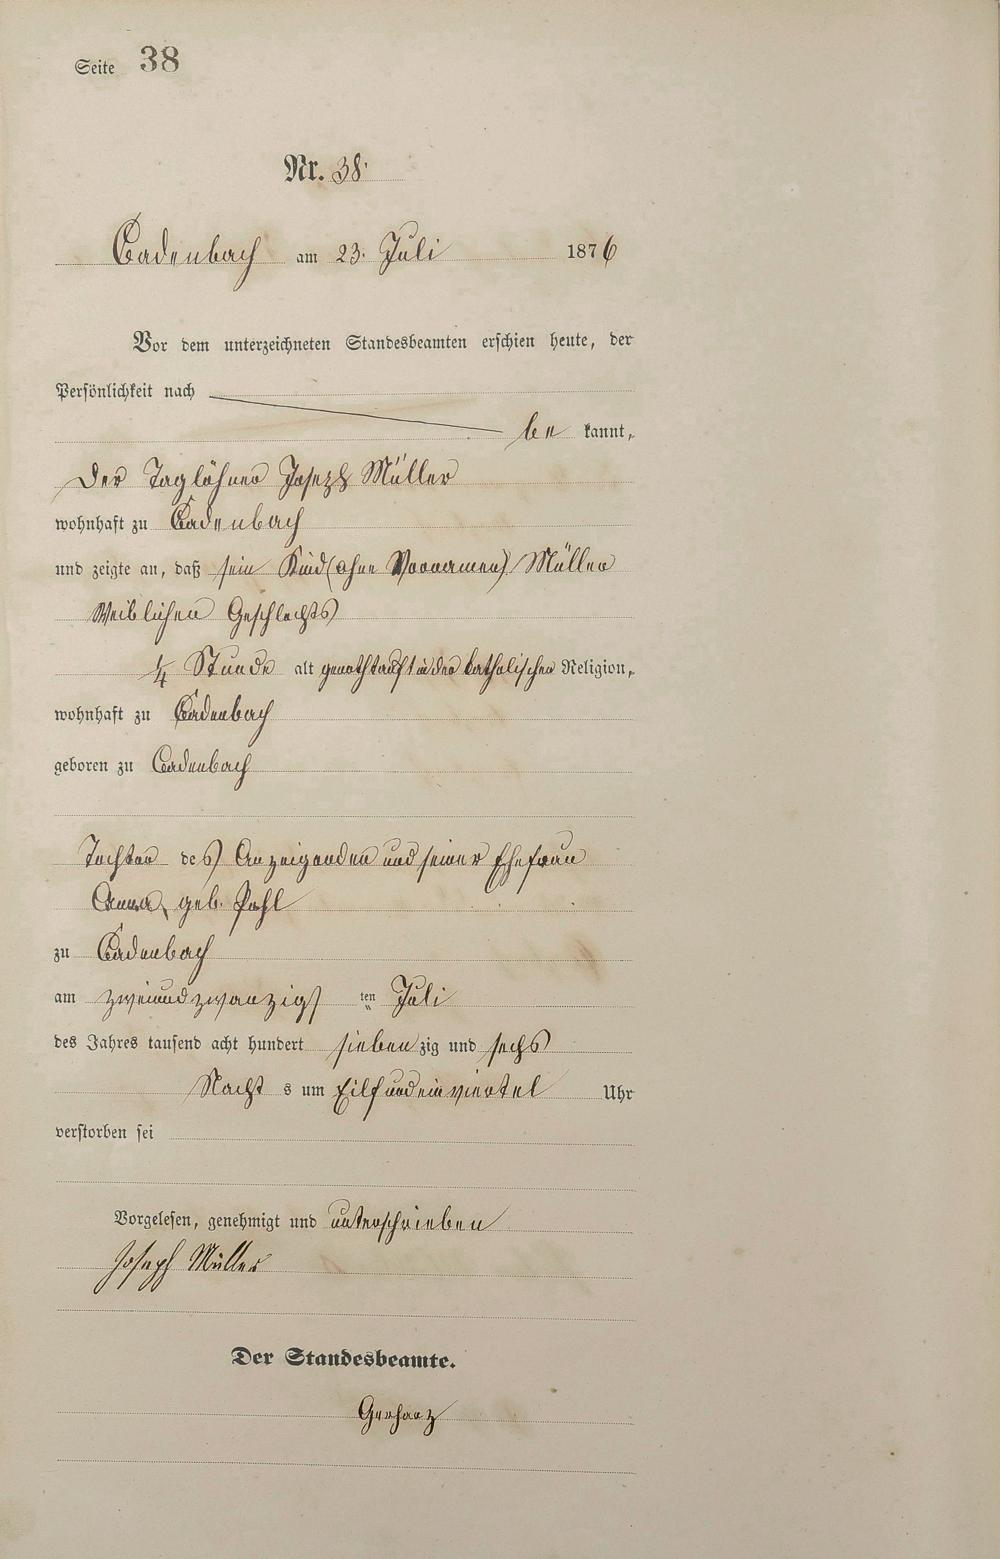 Seite 38
Nr. 38.
Cadenbach am 23. Juli 1876
Vor dem unterzeichneten Standesbeamten erschien heute, der
Persönlichkeit nach
be kannt,
der Taglöhner Joseph Müller
wohnhaft zu Cadenbach
und zeigte an, daß sein Kind (ohne Vornamen) Müller
Weiblichen Geschlechts
1/4 Stunde alt genothtauft in der katholischen Religion,
wohnhaft zu Cadenbach
geboren zu Cadenbach
Tochter des Anzeigenden und seiner Ehefrau
Anna, geb. Pohl
zu Cadenbach
am zweiundzwanzigs ten Juli
des Jahres tausend acht hundert sieben zig und sechs
Nacht s um Eilf und ein viertel Uhr
verstorben sei
Vorgelesen, genehmigt und unterschrieben
Joseph Müller
Der Standesbeamte.
Gerharz